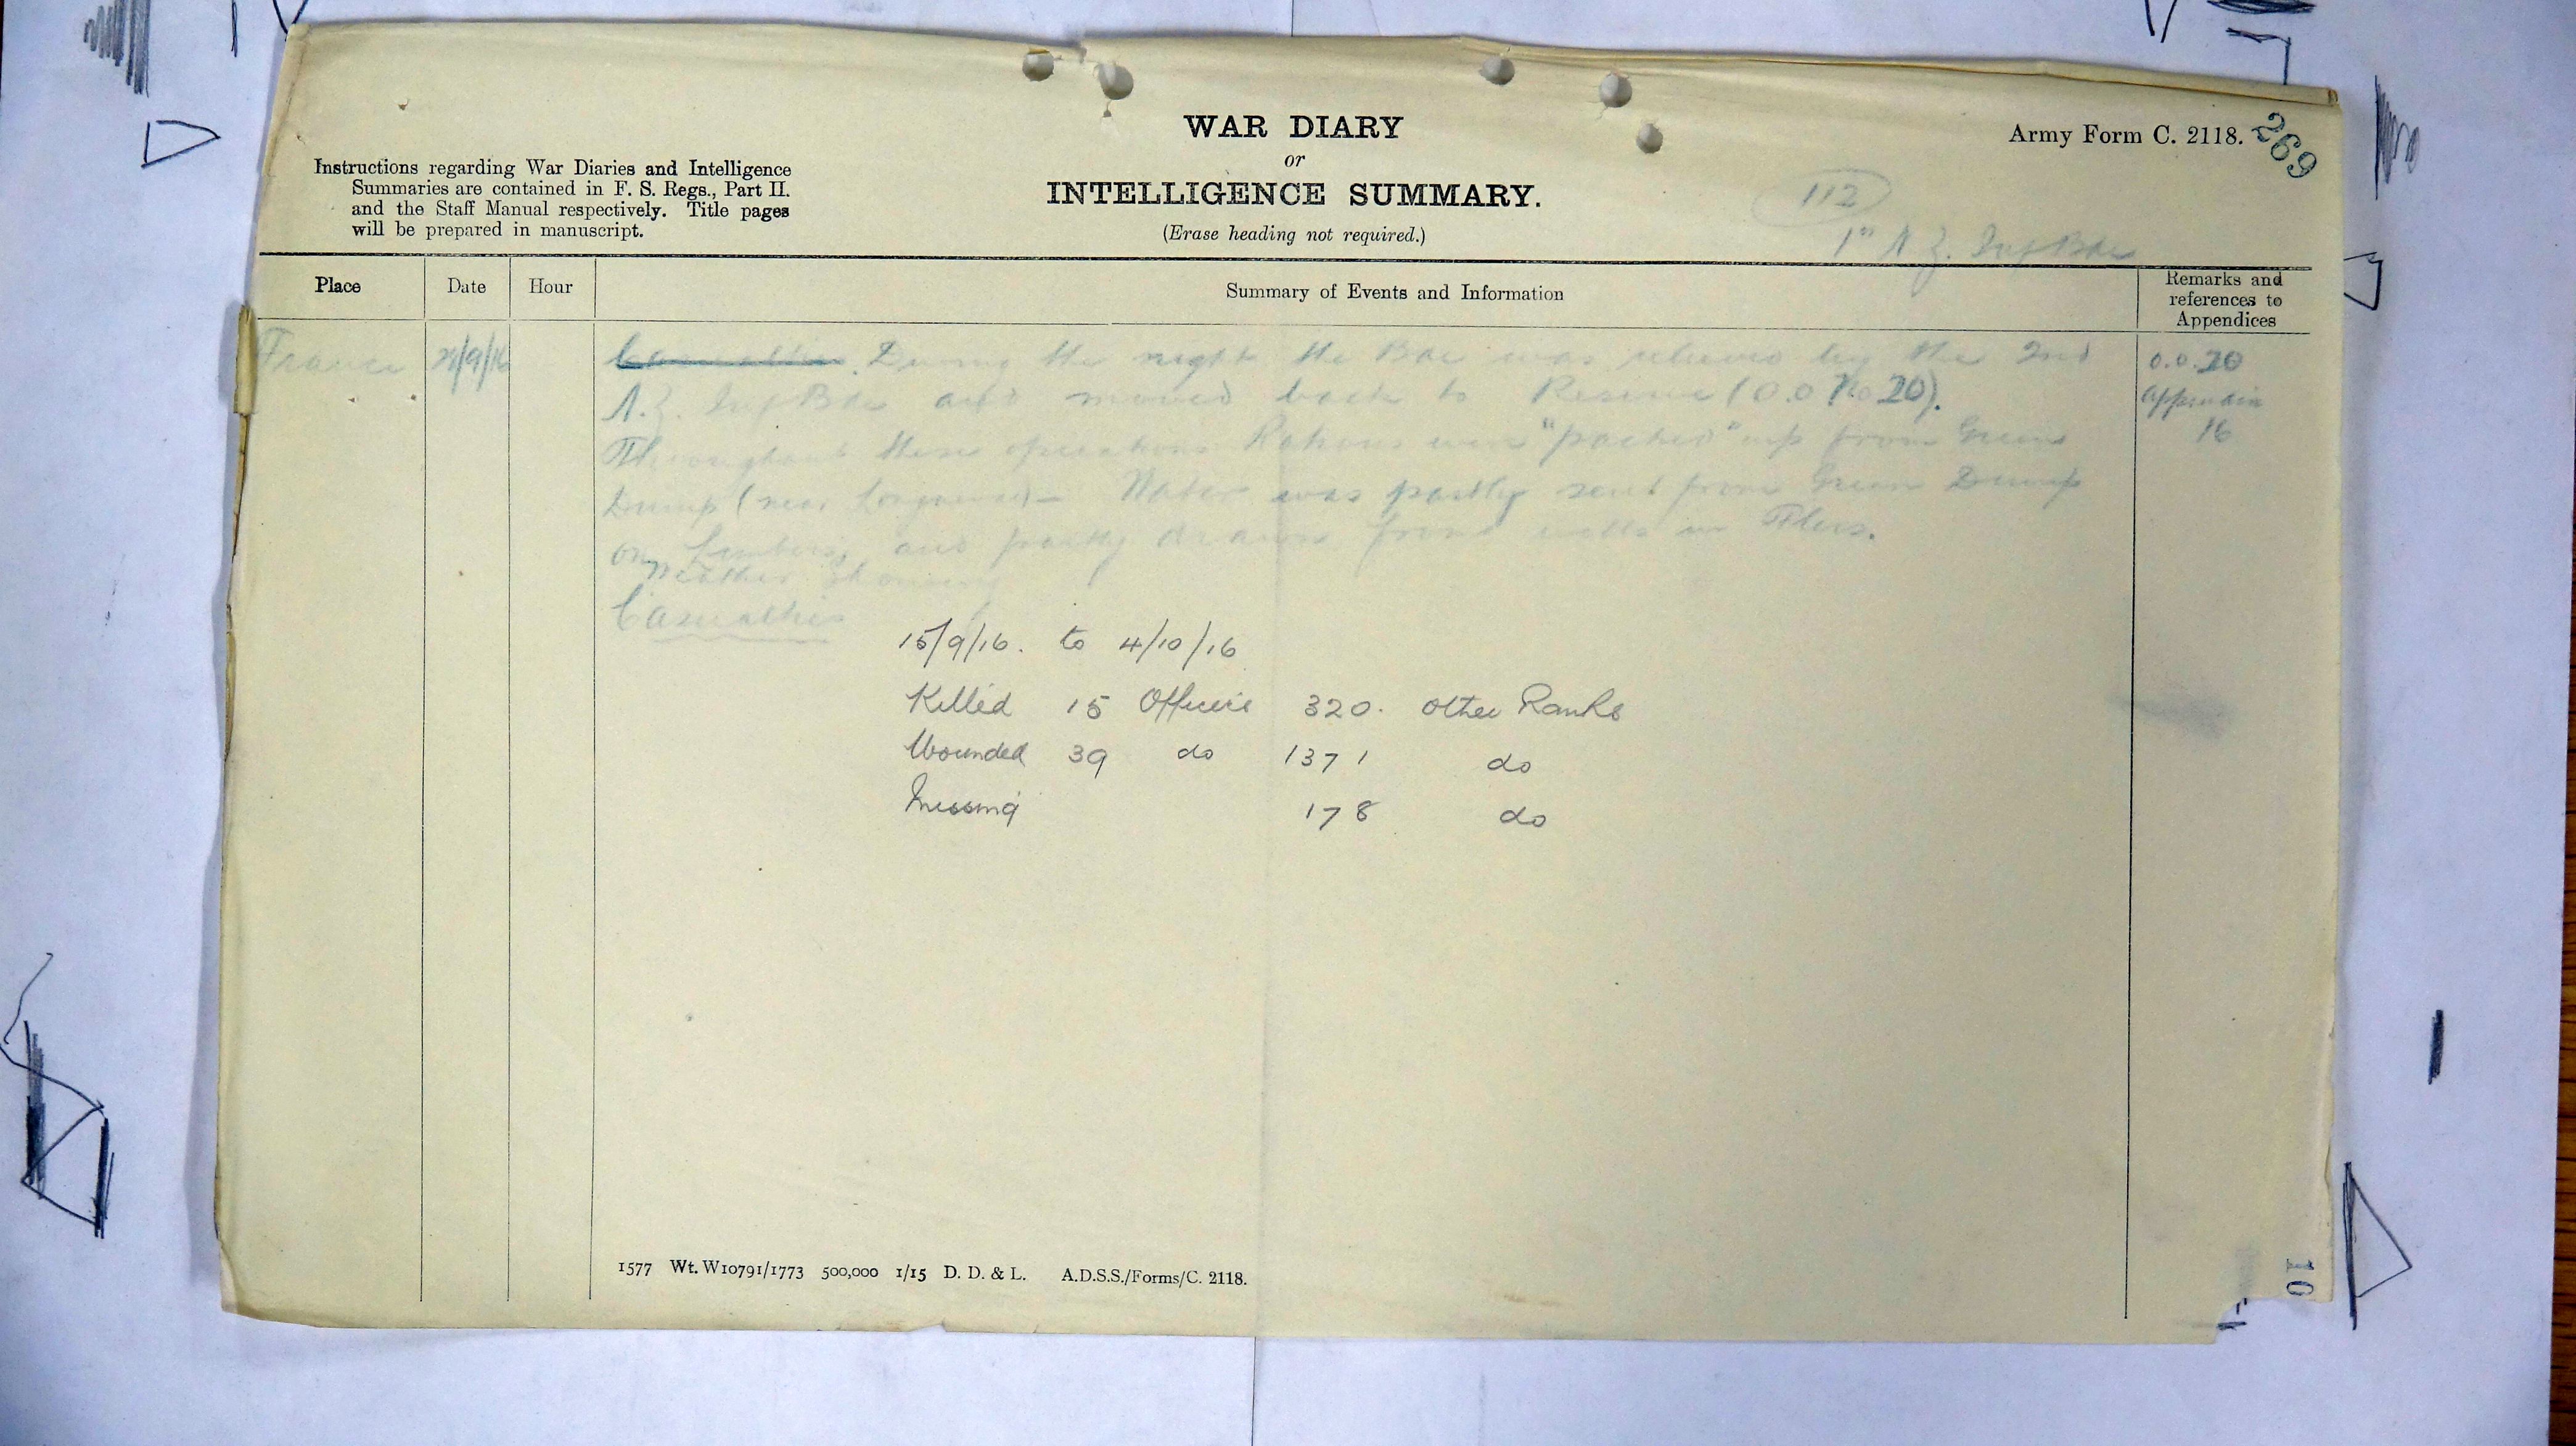 WAR DIARY
or
INTELLIGENCE SUMMARY.
(Erase heading not required.)
Instructions regarding War Diaries and Intelligence
Summaries are contained in F. S. Regs., Part II.
and the Staff Manual respectively. Title pages
will be prepared in manuscript.
Army Form C. 2118.
269
112
1st N.Z. Inf Bde
Place
Date
Hour
Summary of Events and Information
Remarks and
references to
Appendices
France
/9/16
Casualties. During the night the Bde was relieved by the 2nd
N.Z. Inf Bde and moved back to Reserve (O.O No 20).
Throughout these operations Rations were "packed" up from Green
Dump (near Longueval) - Water was partly sent from Green Dump
on Limbers, and partly drawn from wells in Flers.
Weather Showery
Casualties
O.O. 20
Appendix
16
15/9/16. to 4/10/16
Killed 15 Officers 320. other Ranks
Wounded 39 do 1371 do
Missing 178 do
1577 Wt. W10791/1773 500,000 1/15 D. D. & L. A.D.S.S./Forms/C. 2118.
10